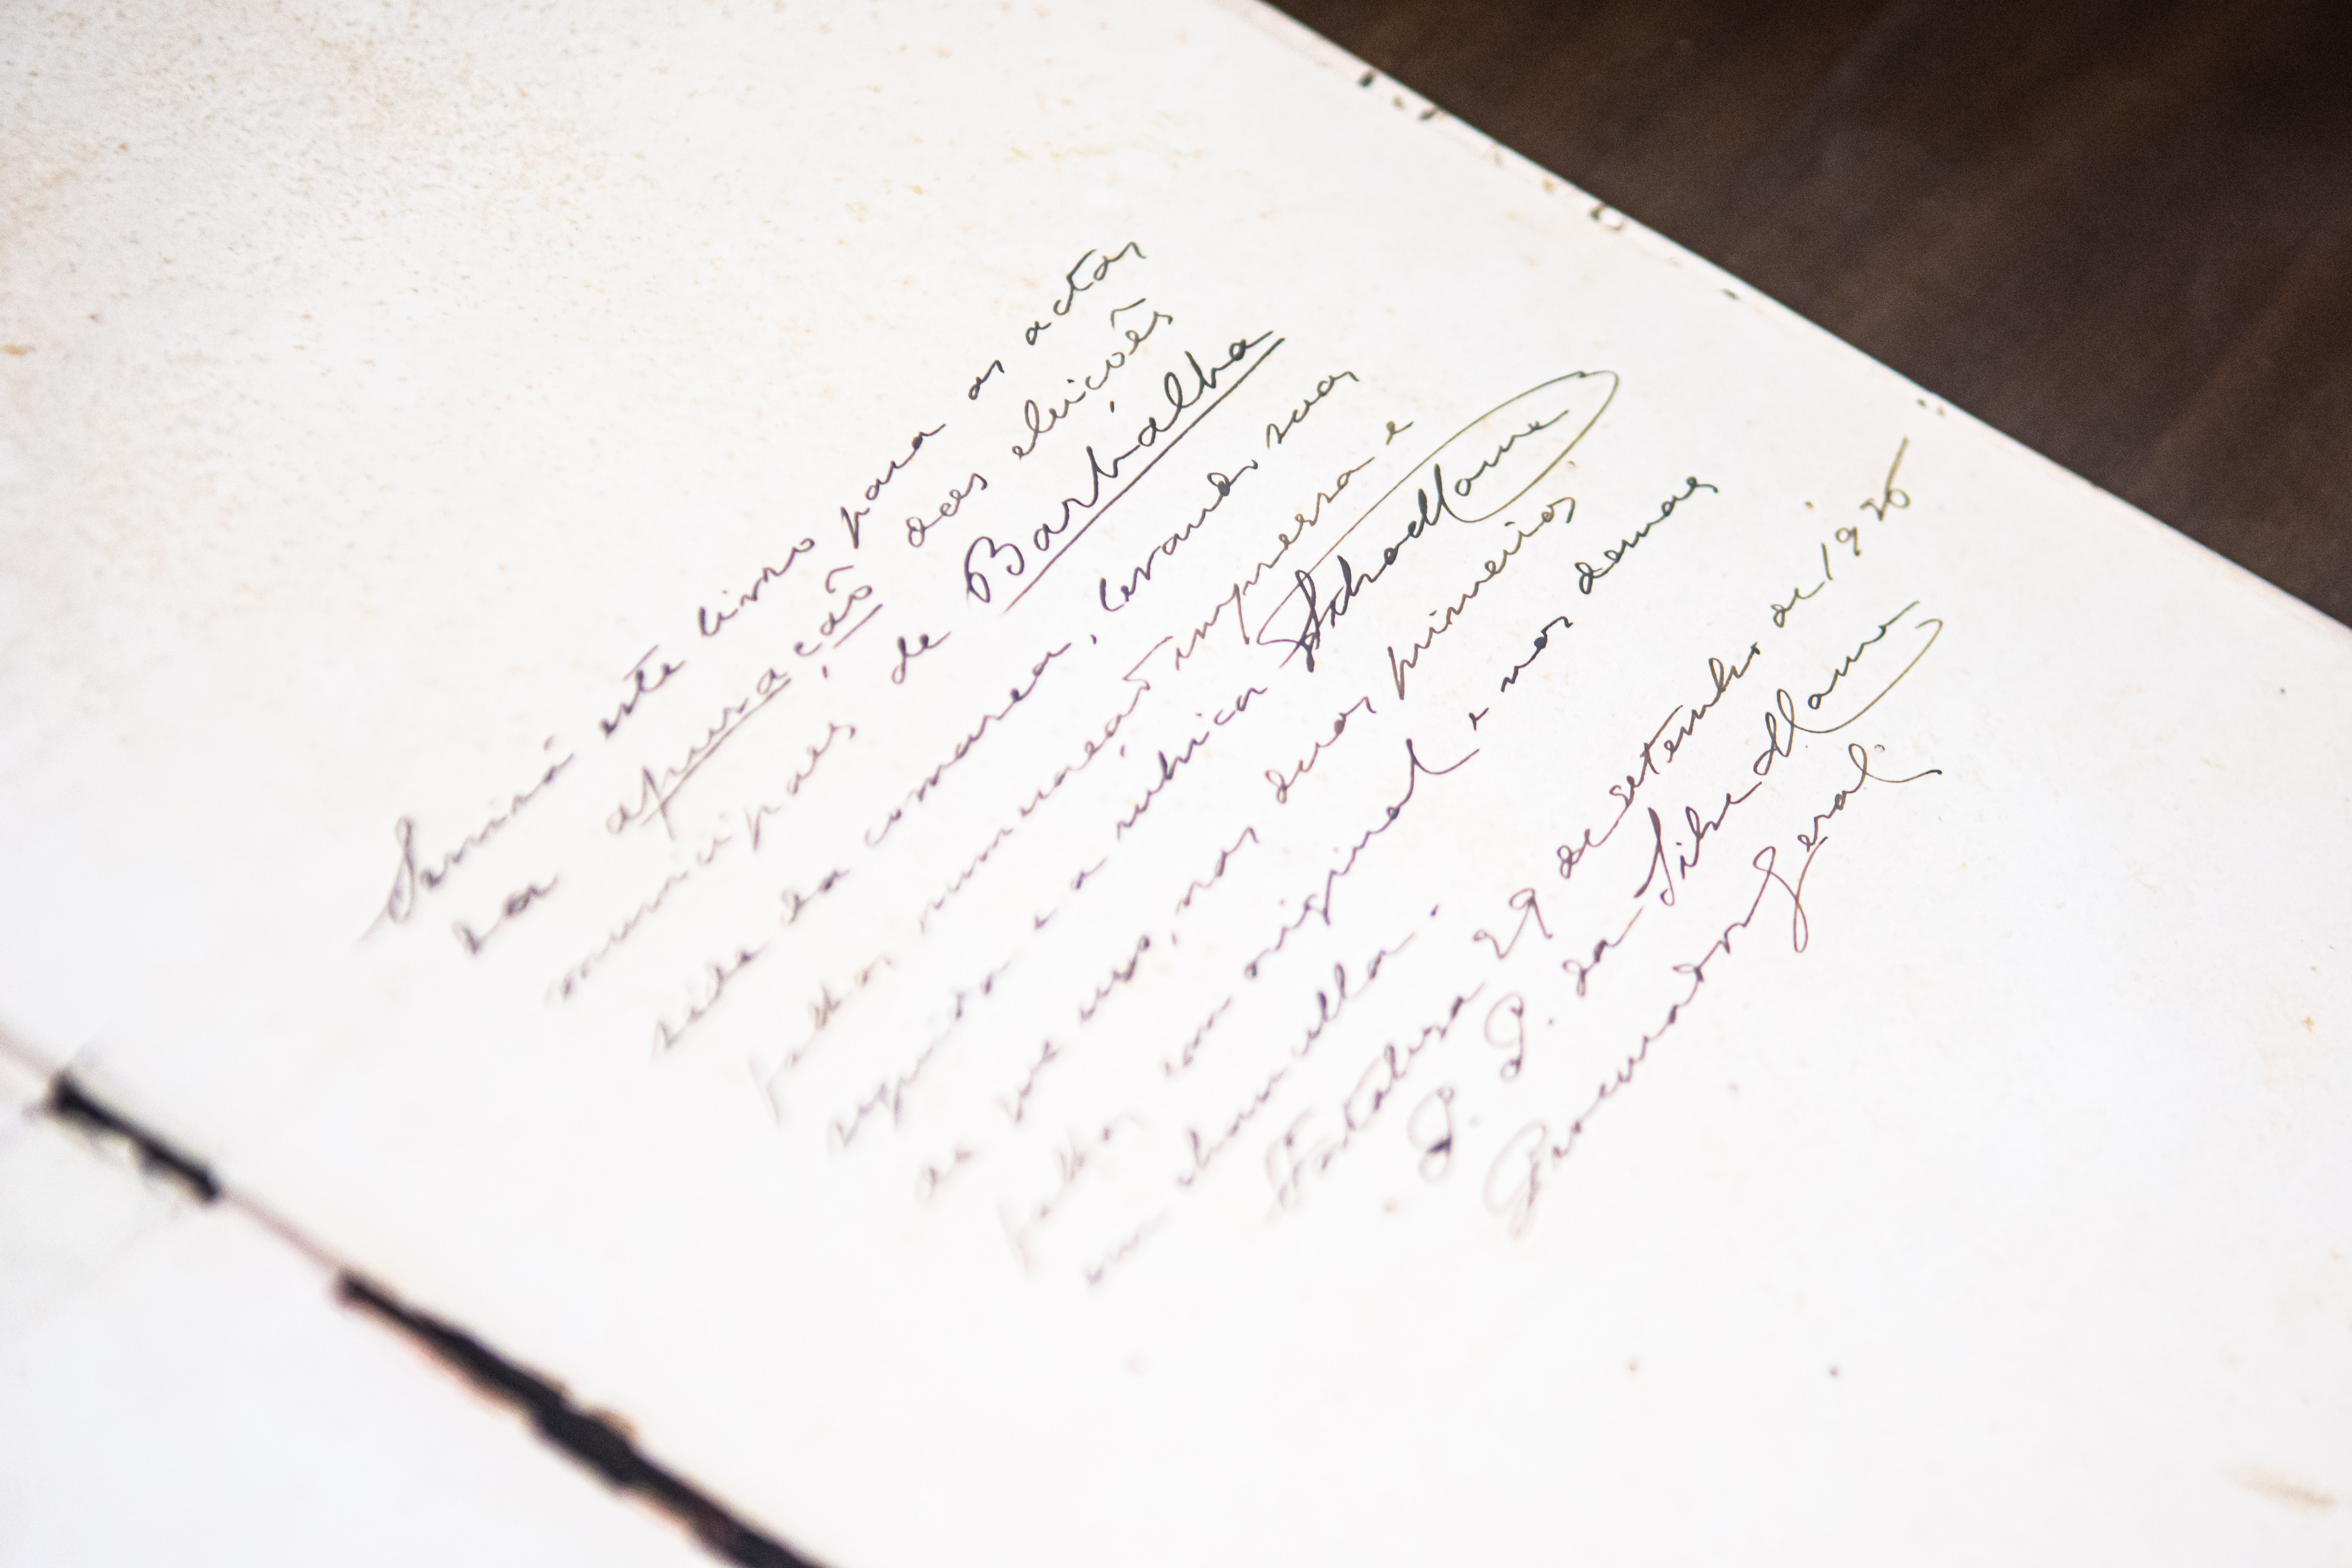 Servirá este livro para as actas
da apuração das eleições
municipaes de Barbalha
séde da comarca, levando suas
folhas numeração impressa e
seguida e a rubrica
de que uso, nas duas primeiras
folhas com original e nas demais
em chancella.
Fortaleza 29 de setembro de 1936
da Silva Moura
Procurador Geral